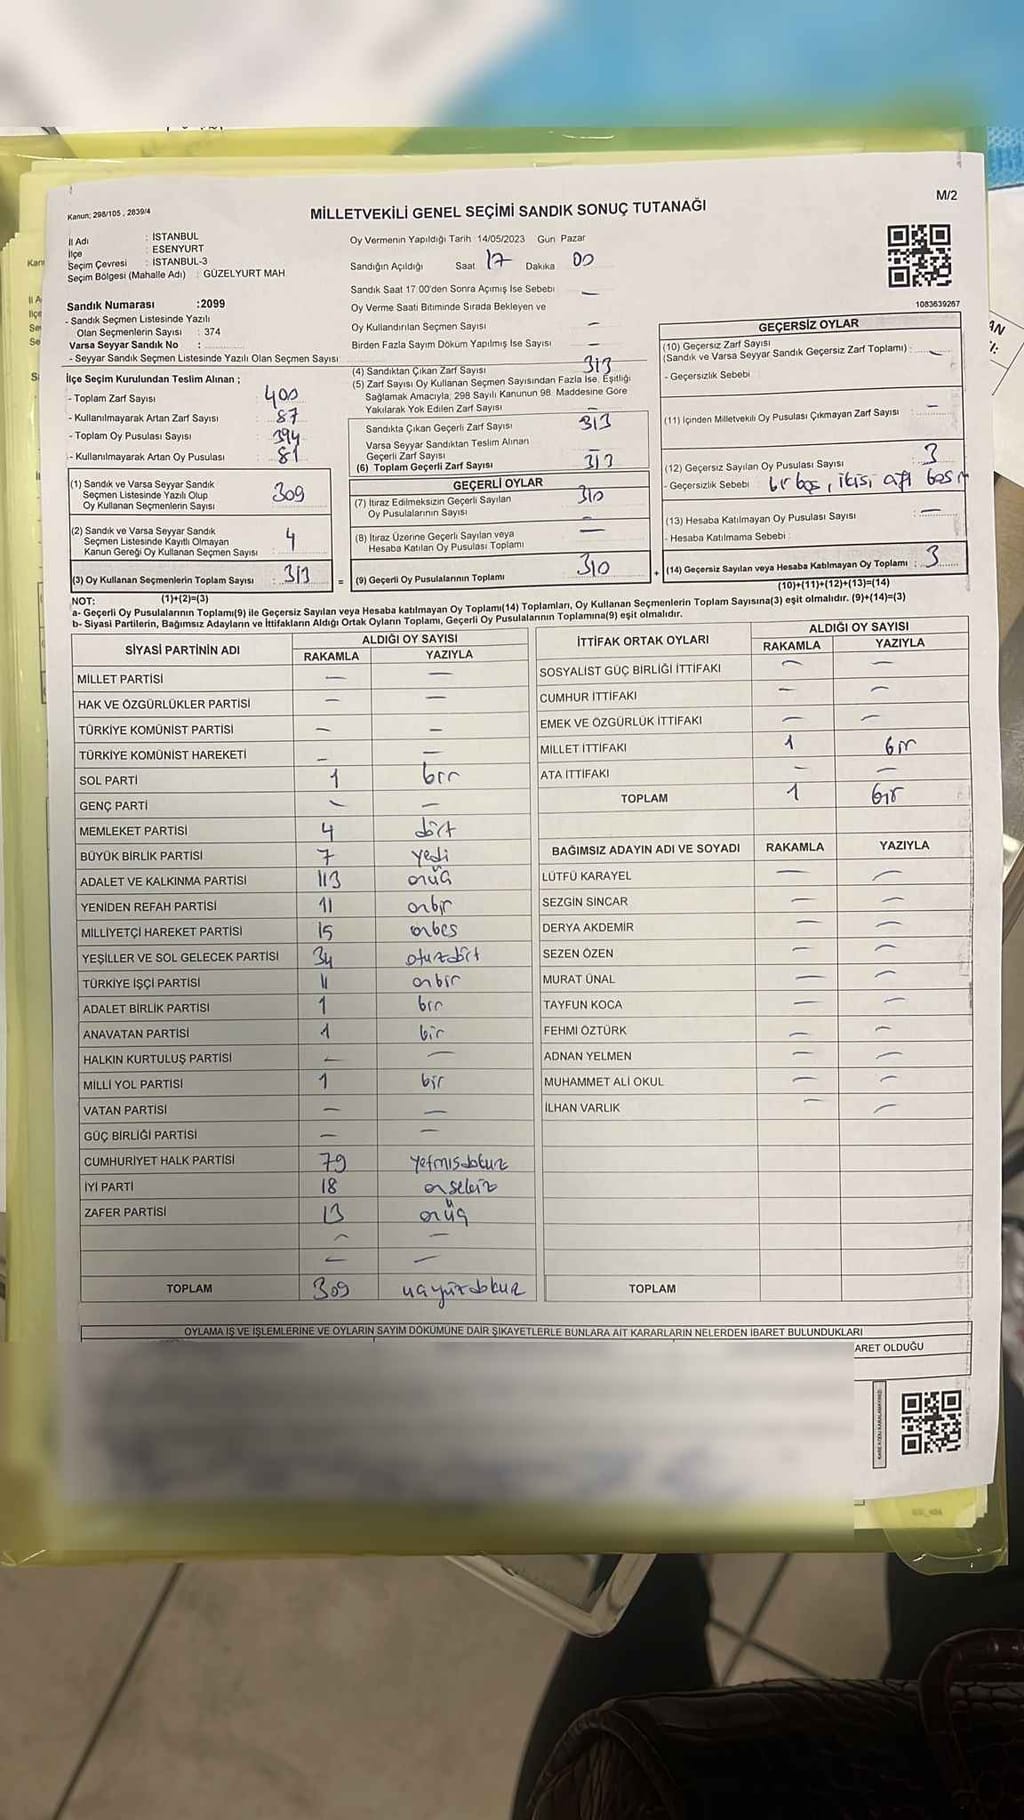 Kanun; 298/105 , 2839/4
MİLLETVEKİLİ GENEL SEÇİMİ SANDIK SONUÇ TUTANAĞI
M/2
İl Adı : İSTANBUL
İlçe : ESENYURT
Seçim Çevresi : İSTANBUL-3
Seçim Bölgesi (Mahalle Adı) : GÜZELYURT MAH
Sandık Numarası :2099
- Sandık Seçmen Listesinde Yazılı
Olan Seçmenlerin Sayısı : 374
Varsa Seyyar Sandık No :
- Seyyar Sandık Seçmen Listesinde Yazılı Olan Seçmen Sayısı
Oy Vermenin Yapıldığı Tarih :14/05/2023 Gün Pazar
Sandığın Açıldığı Saat 17 Dakika 00
Sandık Saat 17:00'den Sonra Açımış İse Sebebi —
Oy Verme Saati Bitiminde Sırada Bekleyen ve
Oy Kullandırılan Seçmen Sayısı —
Birden Fazla Sayım Döküm Yapılmış İse Sayısı —
1083639267
İlçe Seçim Kurulundan Teslim Alınan ;
- Toplam Zarf Sayısı 400
- Kullanılmayarak Artan Zarf Sayısı 87
- Toplam Oy Pusulası Sayısı 394
- Kullanılmayarak Artan Oy Pusulası 81
(1) Sandık ve Varsa Seyyar Sandık
Seçmen Listesinde Yazılı Olup
Oy Kullanan Seçmenlerin Sayısı 309
(2) Sandık ve Varsa Seyyar Sandık
Seçmen Listesinde Kayıtlı Olmayan
Kanun Gereği Oy Kullanan Seçmen Sayısı 4
(3) Oy Kullanan Seçmenlerin Toplam Sayısı : 313
(1)+(2)=(3)
(4) Sandıktan Çıkan Zarf Sayısı 313
(5) Zarf Sayısı Oy Kullanan Seçmen Sayısından Fazla İse, Eşitliği
Sağlamak Amacıyla, 298 Sayılı Kanunun 98. Maddesine Göre
Yakılarak Yok Edilen Zarf Sayısı —
Sandıkta Çıkan Geçerli Zarf Sayısı 313
Varsa Seyyar Sandıktan Teslim Alınan
Geçerli Zarf Sayısı —
(6) Toplam Geçerli Zarf Sayısı 313
GEÇERLİ OYLAR
(7) İtiraz Edilmeksizin Geçerli Sayılan
Oy Pusulalarının Sayısı 310
(8) İtiraz Üzerine Geçerli Sayılan veya
Hesaba Katılan Oy Pusulası Toplamı —
= (9) Geçerli Oy Pusulalarının Toplamı 310
GEÇERSİZ OYLAR
(10) Geçersiz Zarf Sayısı
(Sandık ve Varsa Seyyar Sandık Geçersiz Zarf Toplamı) : —
- Geçersizlik Sebebi :
(11) İçinden Milletvekili Oy Pusulası Çıkmayan Zarf Sayısı —
(12) Geçersiz Sayılan Oy Pusulası Sayısı 3
- Geçersizlik Sebebi bir boş, ikisi
(13) Hesaba Katılmayan Oy Pusulası Sayısı —
- Hesaba Katılmama Sebebi :
+ (14) Geçersiz Sayılan veya Hesaba Katılmayan Oy Toplamı : 3
(10)+(11)+(12)+(13)=(14)
NOT:
a- Geçerli Oy Pusulalarının Toplamı(9) ile Geçersiz Sayılan veya Hesaba katılmayan Oy Toplamı(14) Toplamları, Oy Kullanan Seçmenlerin Toplam Sayısına(3) eşit olmalıdır. (9)+(14)=(3)
b- Siyasi Partilerin, Bağımsız Adayların ve İttifakların Aldığı Ortak Oyların Toplamı, Geçerli Oy Pusulalarının Toplamına(9) eşit olmalıdır.
SİYASİ PARTİNİN ADI ALDIĞI OY SAYISI
RAKAMLA YAZIYLA
MİLLET PARTİSİ — —
HAK VE ÖZGÜRLÜKLER PARTİSİ — —
TÜRKİYE KOMÜNİST PARTİSİ — —
TÜRKİYE KOMÜNİST HAREKETİ — —
SOL PARTİ 1 bir
GENÇ PARTİ — —
MEMLEKET PARTİSİ 4 dört
BÜYÜK BİRLİK PARTİSİ 7 yedi
ADALET VE KALKINMA PARTİSİ 113 onüç
YENİDEN REFAH PARTİSİ 11 onbir
MİLLİYETÇİ HAREKET PARTİSİ 15 onbeş
YEŞİLLER VE SOL GELECEK PARTİSİ 34 otuzdört
TÜRKİYE İŞÇİ PARTİSİ 11 onbir
ADALET BİRLİK PARTİSİ 1 bir
ANAVATAN PARTİSİ 1 bir
HALKIN KURTULUŞ PARTİSİ — —
MİLLİ YOL PARTİSİ 1 bir
VATAN PARTİSİ — —
GÜÇ BİRLİĞİ PARTİSİ — —
CUMHURİYET HALK PARTİSİ 79 yetmişdokuz
İYİ PARTİ 18 onsekiz
ZAFER PARTİSİ 13 onüç
— —
— —
TOPLAM 309 üçyüzdokuz
İTTİFAK ORTAK OYLARI ALDIĞI OY SAYISI
RAKAMLA YAZIYLA
SOSYALİST GÜÇ BİRLİĞİ İTTİFAKI — —
CUMHUR İTTİFAKI — —
EMEK VE ÖZGÜRLÜK İTTİFAKI — —
MİLLET İTTİFAKI 1 bir
ATA İTTİFAKI — —
TOPLAM 1 bir
BAĞIMSIZ ADAYIN ADI VE SOYADI RAKAMLA YAZIYLA
LÜTFÜ KARAYEL — —
SEZGİN SINCAR — —
DERYA AKDEMİR — —
SEZEN ÖZEN — —
MURAT ÜNAL — —
TAYFUN KOCA — —
FEHMİ ÖZTÜRK — —
ADNAN YELMEN — —
MUHAMMET ALİ OKUL — —
İLHAN VARLIK — —
TOPLAM
OYLAMA İŞ VE İŞLEMLERİNE VE OYLARIN SAYIM DÖKÜMÜNE DAİR ŞİKAYETLERLE BUNLARA AİT KARARLARIN NELERDEN İBARET BULUNDUKLARI
ARET OLDUĞU